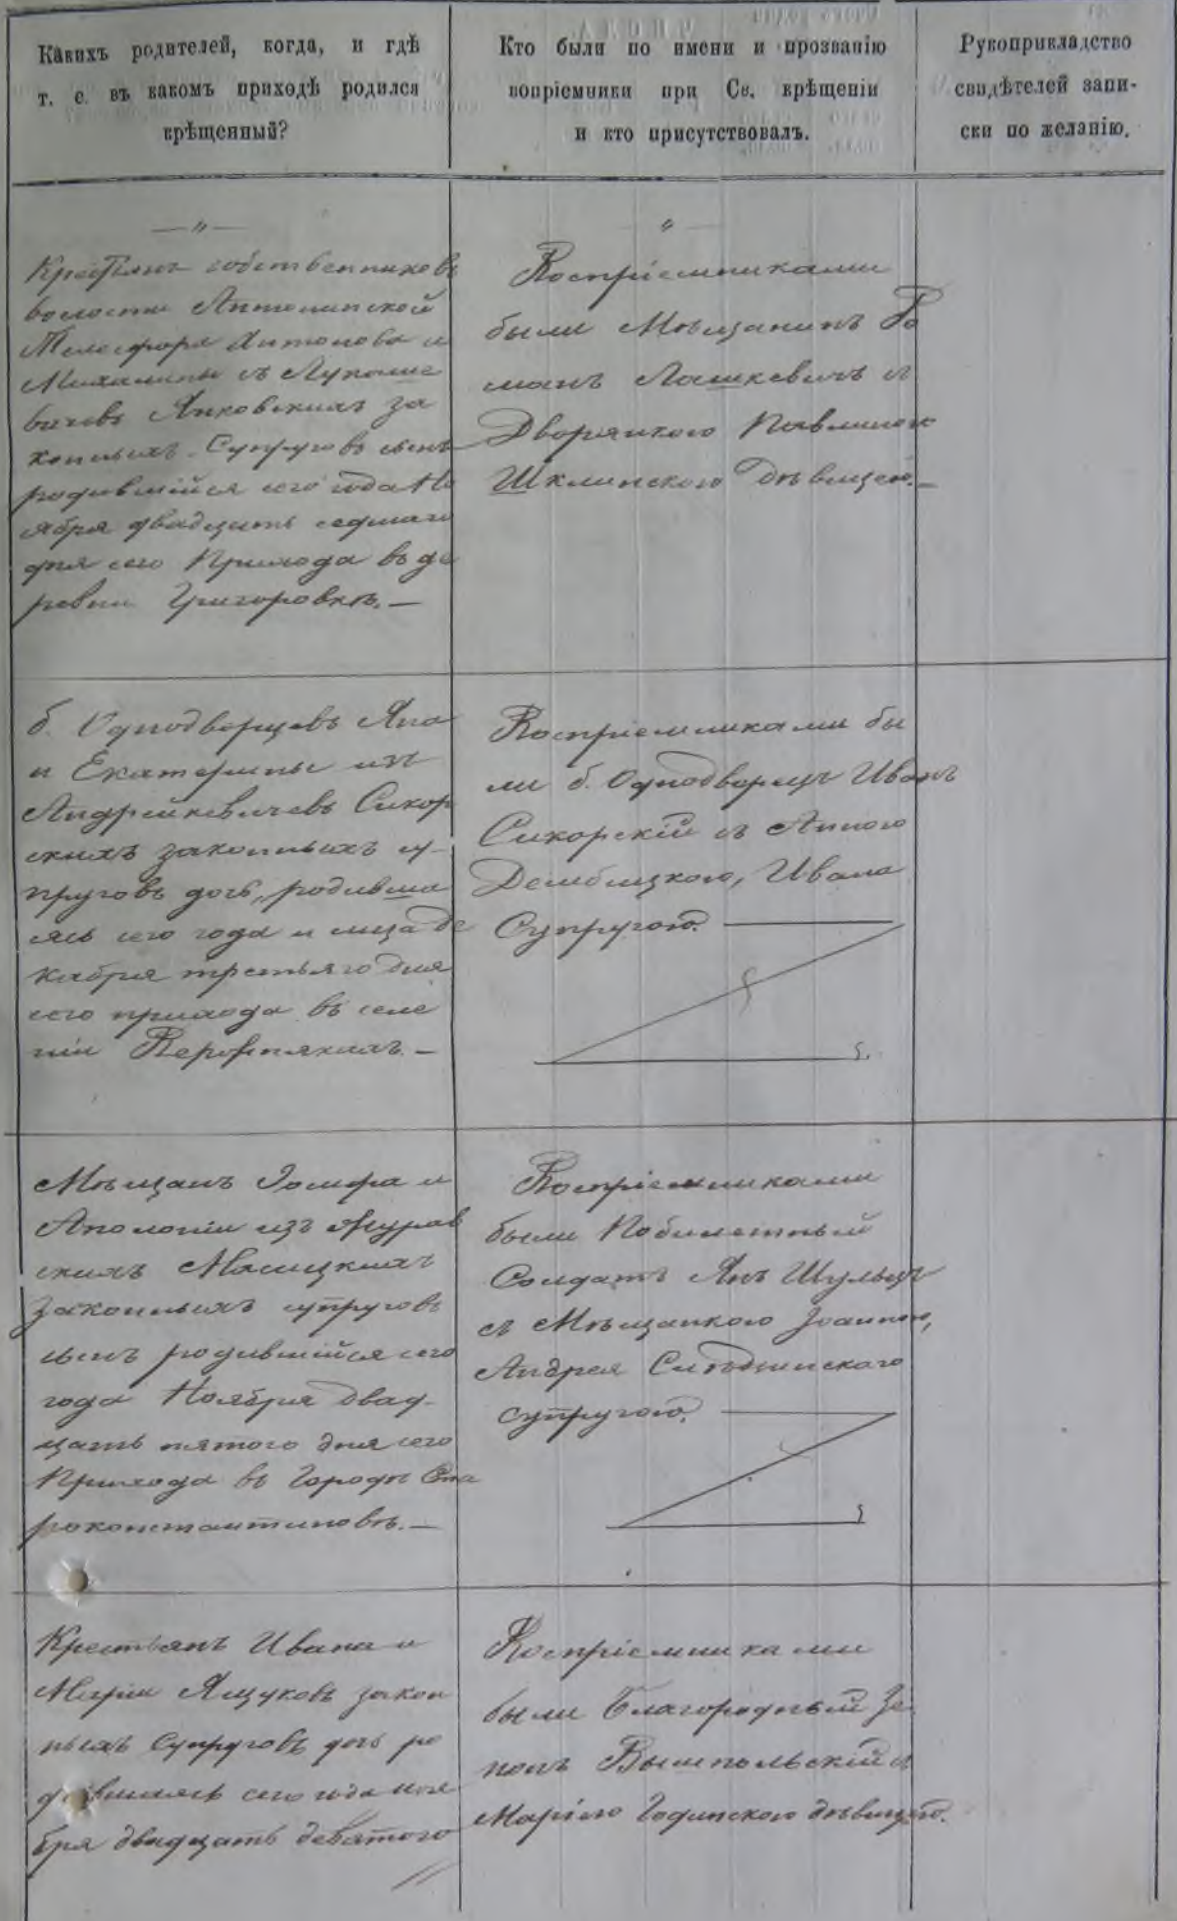 Какихъ родителей, когда, и гдѣ
т. е. въ какомъ приходѣ родился
крѣщенный?
Кто были по имени и прозванію
вопріемники при Св. крѣщеніи
и кто присутствовалъ.
Рукоприкладство
свидѣтелей запи-
ски по желанію.
—„—
Крестьянъ собственниковъ
волости Антонинской
Телесфора Антонова и
Михалины съ Лукаше
вичевъ Янковскихъ за
конныхъ Супруговъ сынъ
родившійся сего года Но
ября двадцать седьмаго
дня сего Прихода въ де
ревни Григоровкѣ.—
„
Воспріемниками
были Мѣщанинъ Ро
манъ Лашкевичъ съ
Дворянкою Павлиною
Шклинскою Дѣвицею.—
б. Однодворцевъ Яна
и Екатерины изъ
Андрейкевичевъ Сикор
скихъ законныхъ су-
пруговъ дочь, родивша
яся сего года и мца де
кабря третьяго дня
сего прихода въ селе
ніи Веремнякахъ.—
Воспріемниками бы
ли б. Однодворецъ Иванъ
Сикорскій съ Анною
Дембицкою, Ивана
Супругою.
Мѣщанъ Іосифа и
Аполоніи изъ Журав
скихъ Масицкихъ
законныхъ супруговъ
сынъ родившійся сего
года Ноября двад-
цать пятого дня сего
Прихода въ Городѣ Ста
роконстантиновѣ.—
Воспріемниками
были Побилетный
Солдатъ Янъ Шульцъ
съ Мѣщанкою Іоанною,
Андрея
супругою.
Крестьянъ Ивана и
Маріи Ящуковъ закон
ныхъ Супруговъ дочь ро
дившаяся сего года ноя
бря двадцать девятого
Воспріемниками
были Благородный Зе
нонъ Вышпольскій съ
Маріею Годинскою дѣвицею.